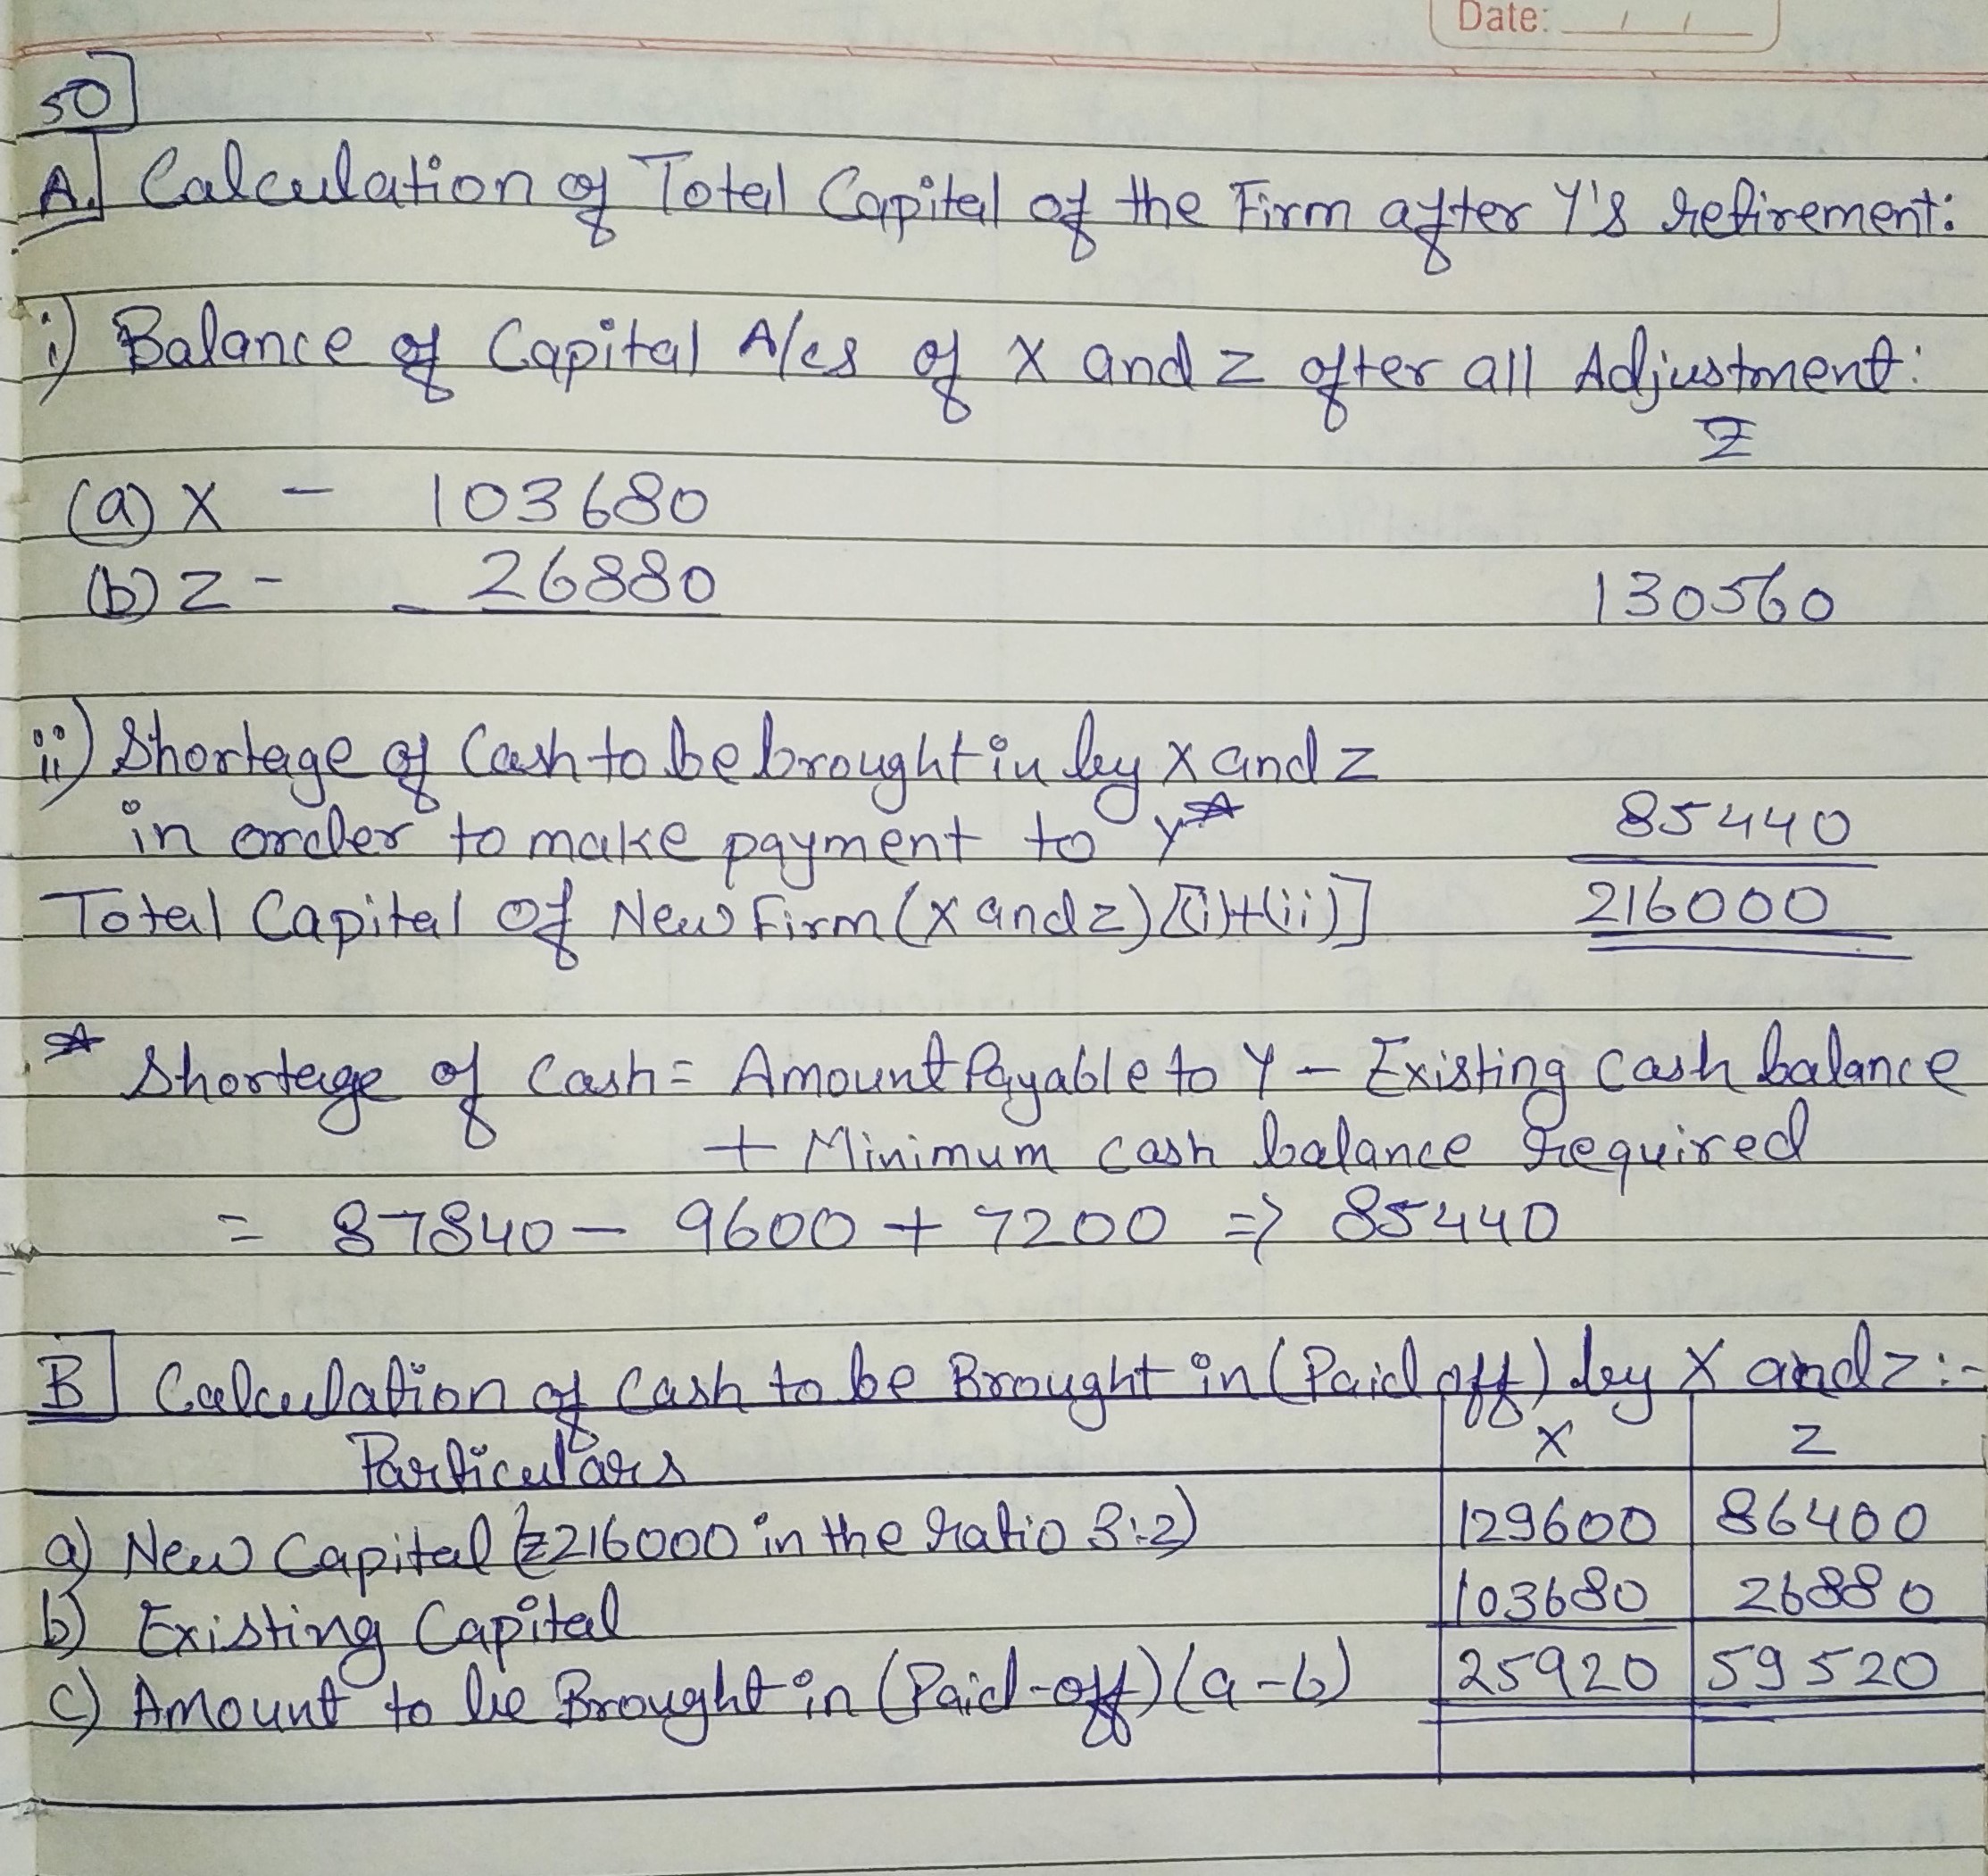 Date: / /
50
A. Calculation of Total Capital of the Firm after Y's retirement:
i) Balance of Capital A/cs of X and Z after all Adjustment:
₹
(a) X - 103680
(b) Z - 26880 130560
ii) Shortage of Cash to be brought in by X and Z
in order to make payment to Y* 85440
Total Capital of New Firm (X and Z) [(i)+(ii)] 216000
* Shortage of Cash = Amount Payable to Y - Existing cash balance
+ Minimum cash balance required
= 87840 - 9600 + 7200 => 85440
B Calculation of Cash to be Brought in (Paid off) by X and Z:-
Particulars X Z
a) New Capital (₹216000 in the ratio 3:2) 129600 86400
b) Existing Capital 103680 26880
c) Amount to be Brought in (Paid-off) (a-b) 25920 59520